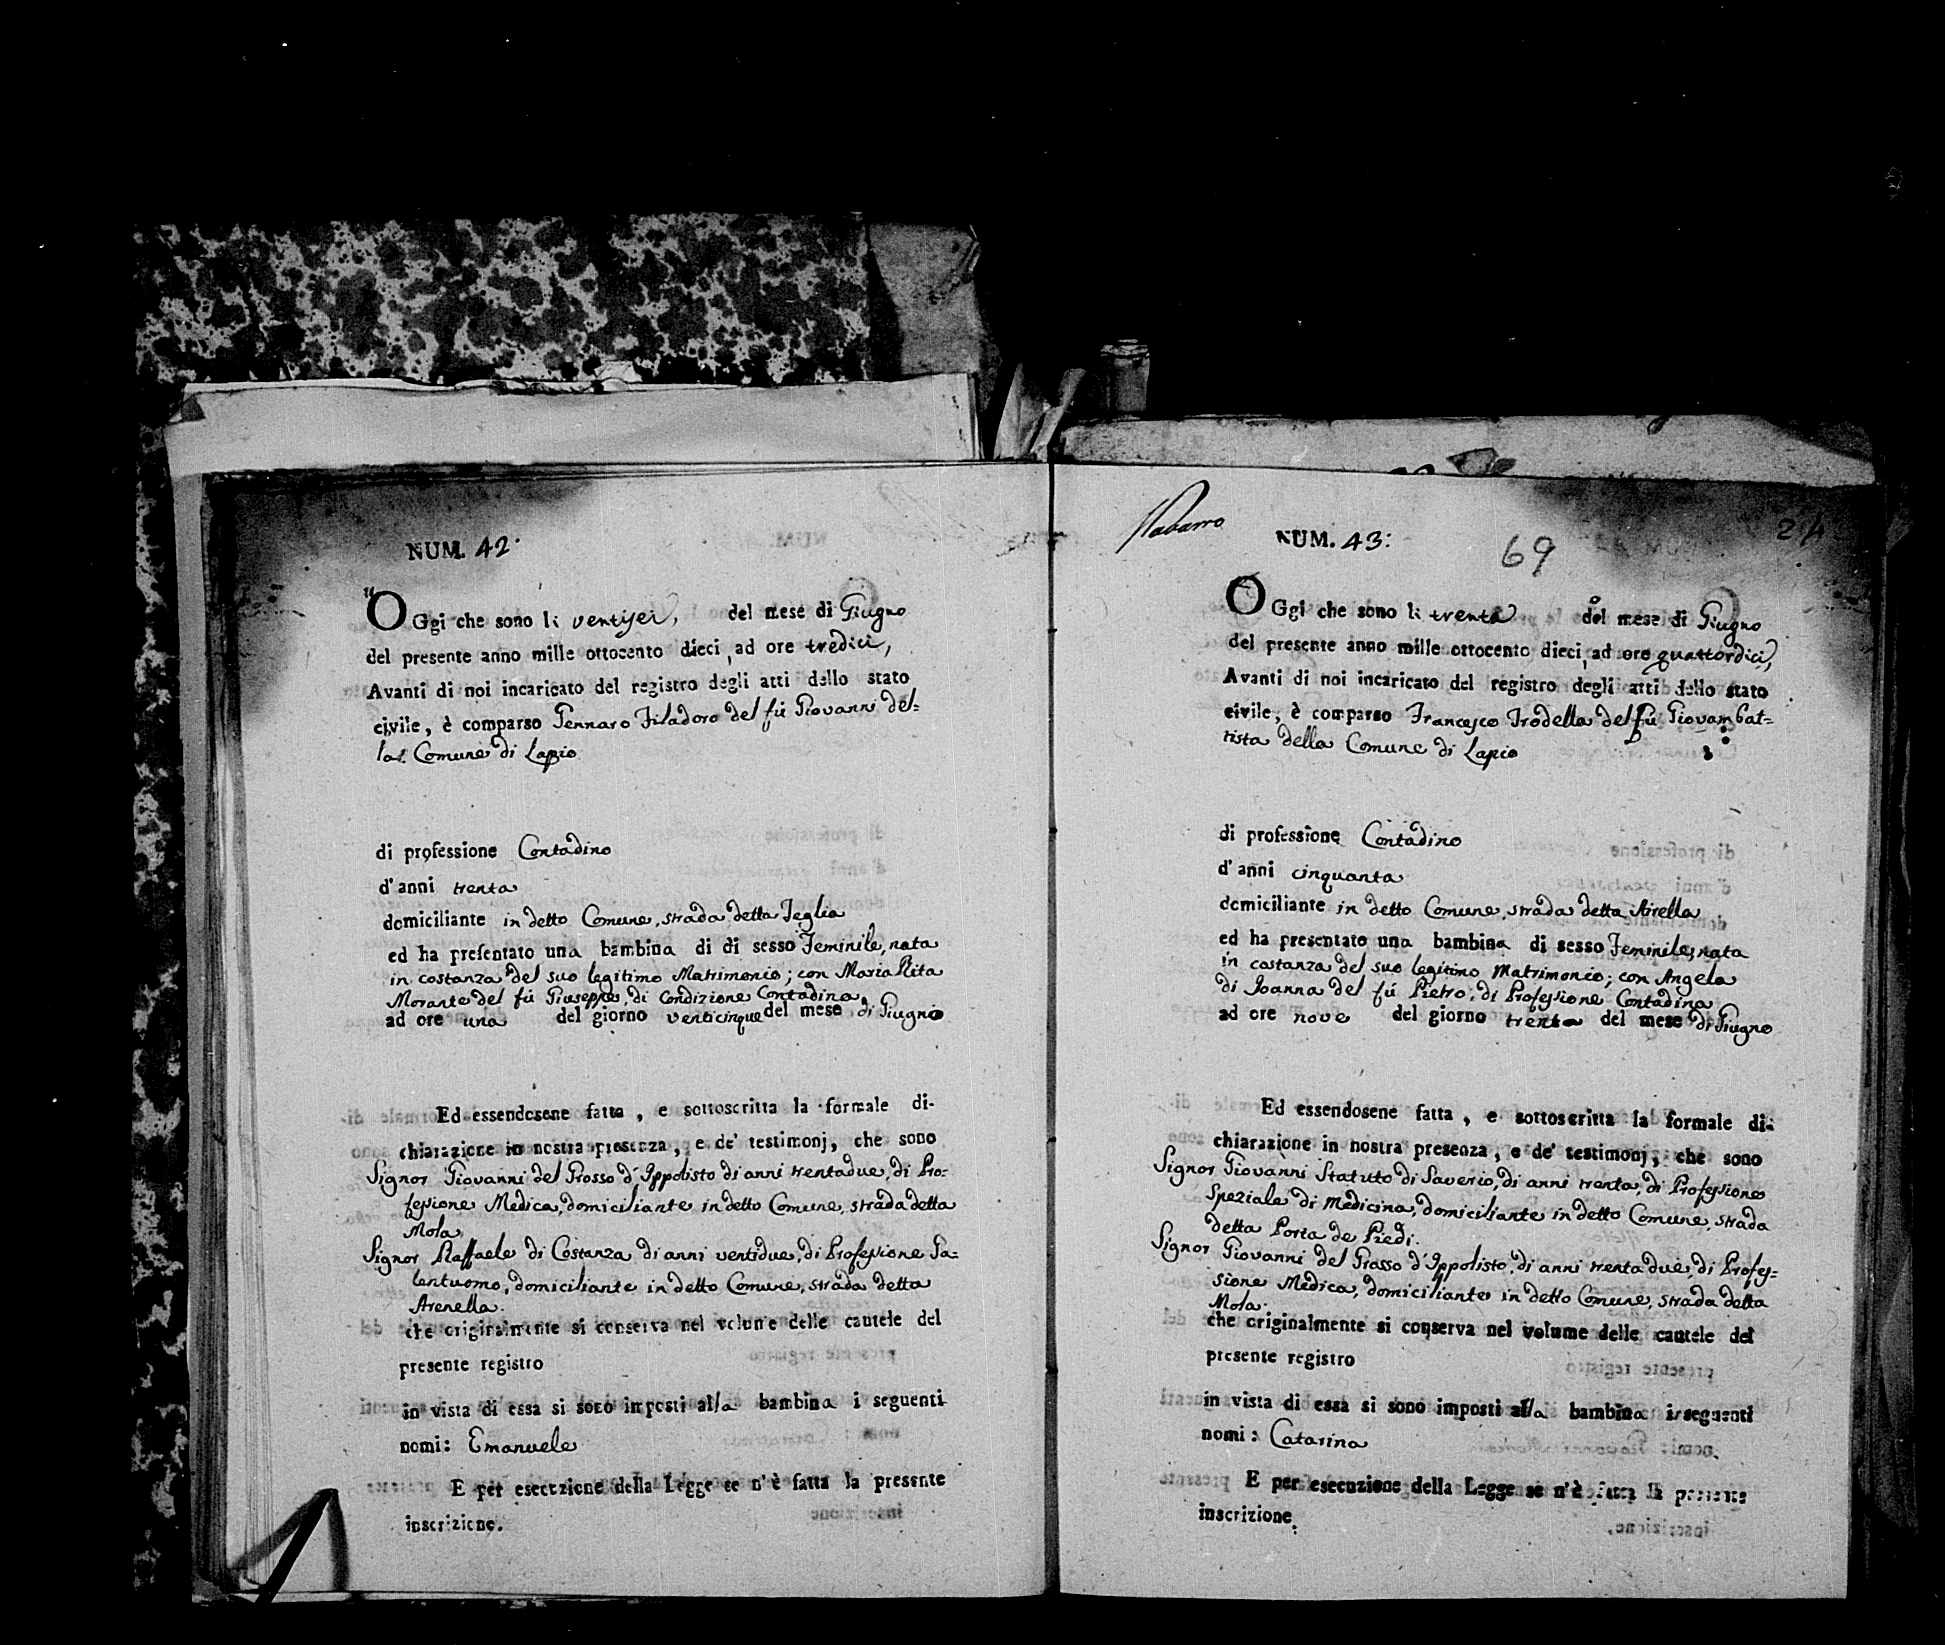 NUM. 42.
OGgi che sono li ventisei, del mese di Giugno
del presente anno mille ottocento dieci, ad ore tredici,
Avanti di noi incaricato del registro degli atti dello stato
civile, è comparso Gennaro Filadoro del fù Giovanni del=
la Comune di Lapio
di professione Contadino
d'anni trenta
domiciliante in detto Comune, strada detta Teglia
ed ha presentato una bambina di di sesso Feminile, nata
in costanza del suo legitimo Matrimonio; con Maria Rita
Morante del fù Giuseppe, di condizione Contadina,
ad ore una del giorno venticinque del mese di Giugno
Ed essendosene fatta, e sottoscritta la formale di-
chiarazione in nostra presenza, e de' testimonj, che sono
Signor Giovanni del Grosso d'Ippolisto di anni trentadue, di Pro=
fessione Medica, domiciliante in detto Comune, strada detta
Mola
Signor Raffaele di Costanza di anni ventidue, di Professione Ga=
lentuomo, domiciliante in detto Comune, strada detta
Arenella.
che originalmente si conserva nel volume delle cautele del
presente registro
in vista di essa si sono imposti alla bambina i seguenti
nomi: Emanuele
E per esecuzione della Legge se n'è fatta la presente
inscrizione.
NUM. 43:
69
24
OGgi che sono li trenta del mese di Giugno
del presente anno mille ottocento dieci, ad ore quattordici,
Avanti di noi incaricato del registro degli atti dello stato
civile, è comparso Francesco Trodella del fù Giovambat=
tista della Comune di Lapio
di professione Contadino
d'anni cinquanta
domiciliante in detto Comune, strada detta Airella
ed ha presentato una bambina di sesso Feminile, nata
in costanza del suo legitimo Matrimonio; con Angela
di Joanna del fù Pietro, di Professione Contadina
ad ore nove del giorno trenta del mese di Giugno
Ed essendosene fatta, e sottoscritta la formale di-
chiarazione in nostra presenza, e de' testimonj, che sono
Signor Giovanni Statuto di Saverio, di anni trenta, di Professione
Speziale di Medicina, domiciliante in detto Comune, strada
detta Porta de Piedi.
Signor Giovanni del Grosso d'Ippolisto, di anni trentadue, di Profes=
sione Medica, domiciliante in detto Comune, strada detta
Mola.
che originalmente si conserva nel volume delle cautele del
presente registro
in vista di essa si sono imposti alla bambina i seguenti
nomi: Catarina
E per esecuzione della Legge se n'è fatta la presente
inscrizione.